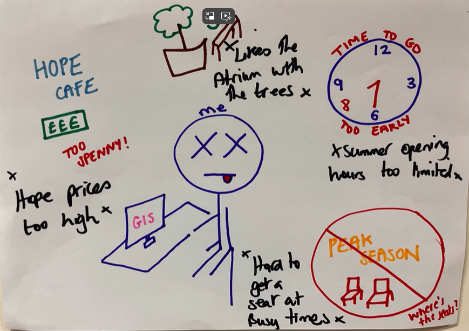 HOPE
CAFE
£££
TOO
SPENNY!
x
Hope prices
too high x
x Likes The
Atrium with
the trees x
TIME TO GO
12
9
3
8
6
TOO EARLY
x Summer opening
hours too limited x
me
GIS
x
Hard to
get a
seat at
Busy times x
PEAK
SEASON
where's
the seats?